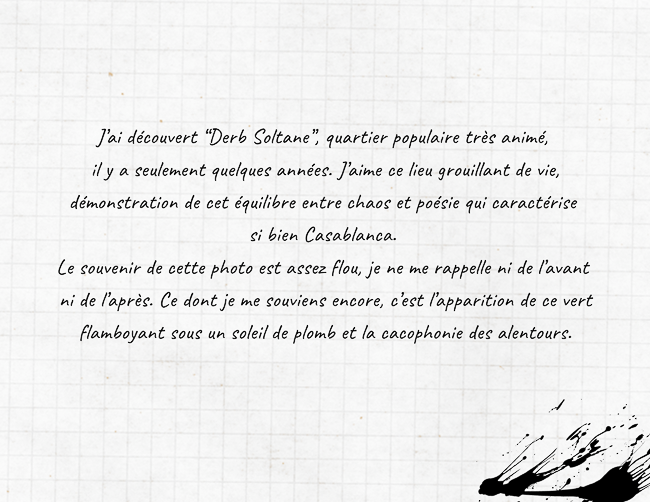 J'ai découvert “Derb Soltane”, quartier populaire très animé,
il y a seulement quelques années. J'aime ce lieu grouillant de vie,
démonstration de cet équilibre entre chaos et poésie qui caractérise
si bien Casablanca.
Le souvenir de cette photo est assez flou, je ne me rappelle ni de l'avant
ni de l'après. Ce dont je me souviens encore, c'est l'apparition de ce vert
flamboyant sous un soleil de plomb et la cacophonie des alentours.